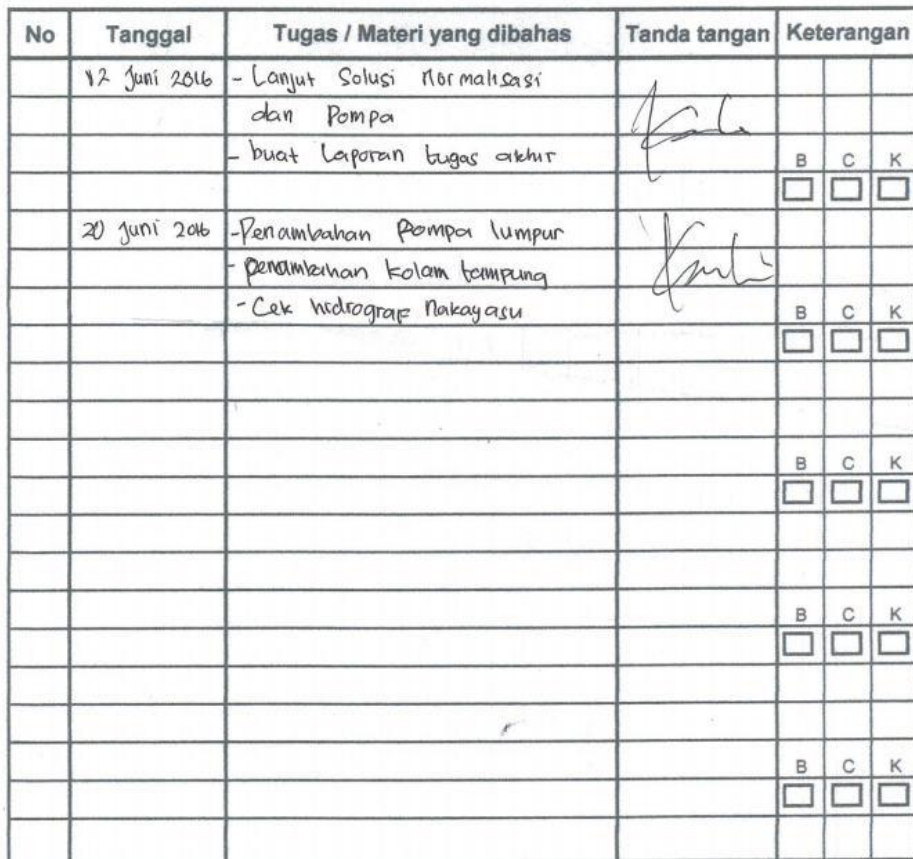 No Tanggal Tugas / Materi yang dibahas Tanda tangan Keterangan
12 Juni 2016 - Lanjut Solusi Normalisasi
dan Pompa
- buat Laporan tugas akhir
B C K
20 Juni 2016 - Penambahan Pompa lumpur
- penambahan kolam tampung
- Cek hidrograf Nakayasu
B C K
B C K
B C K
B C K